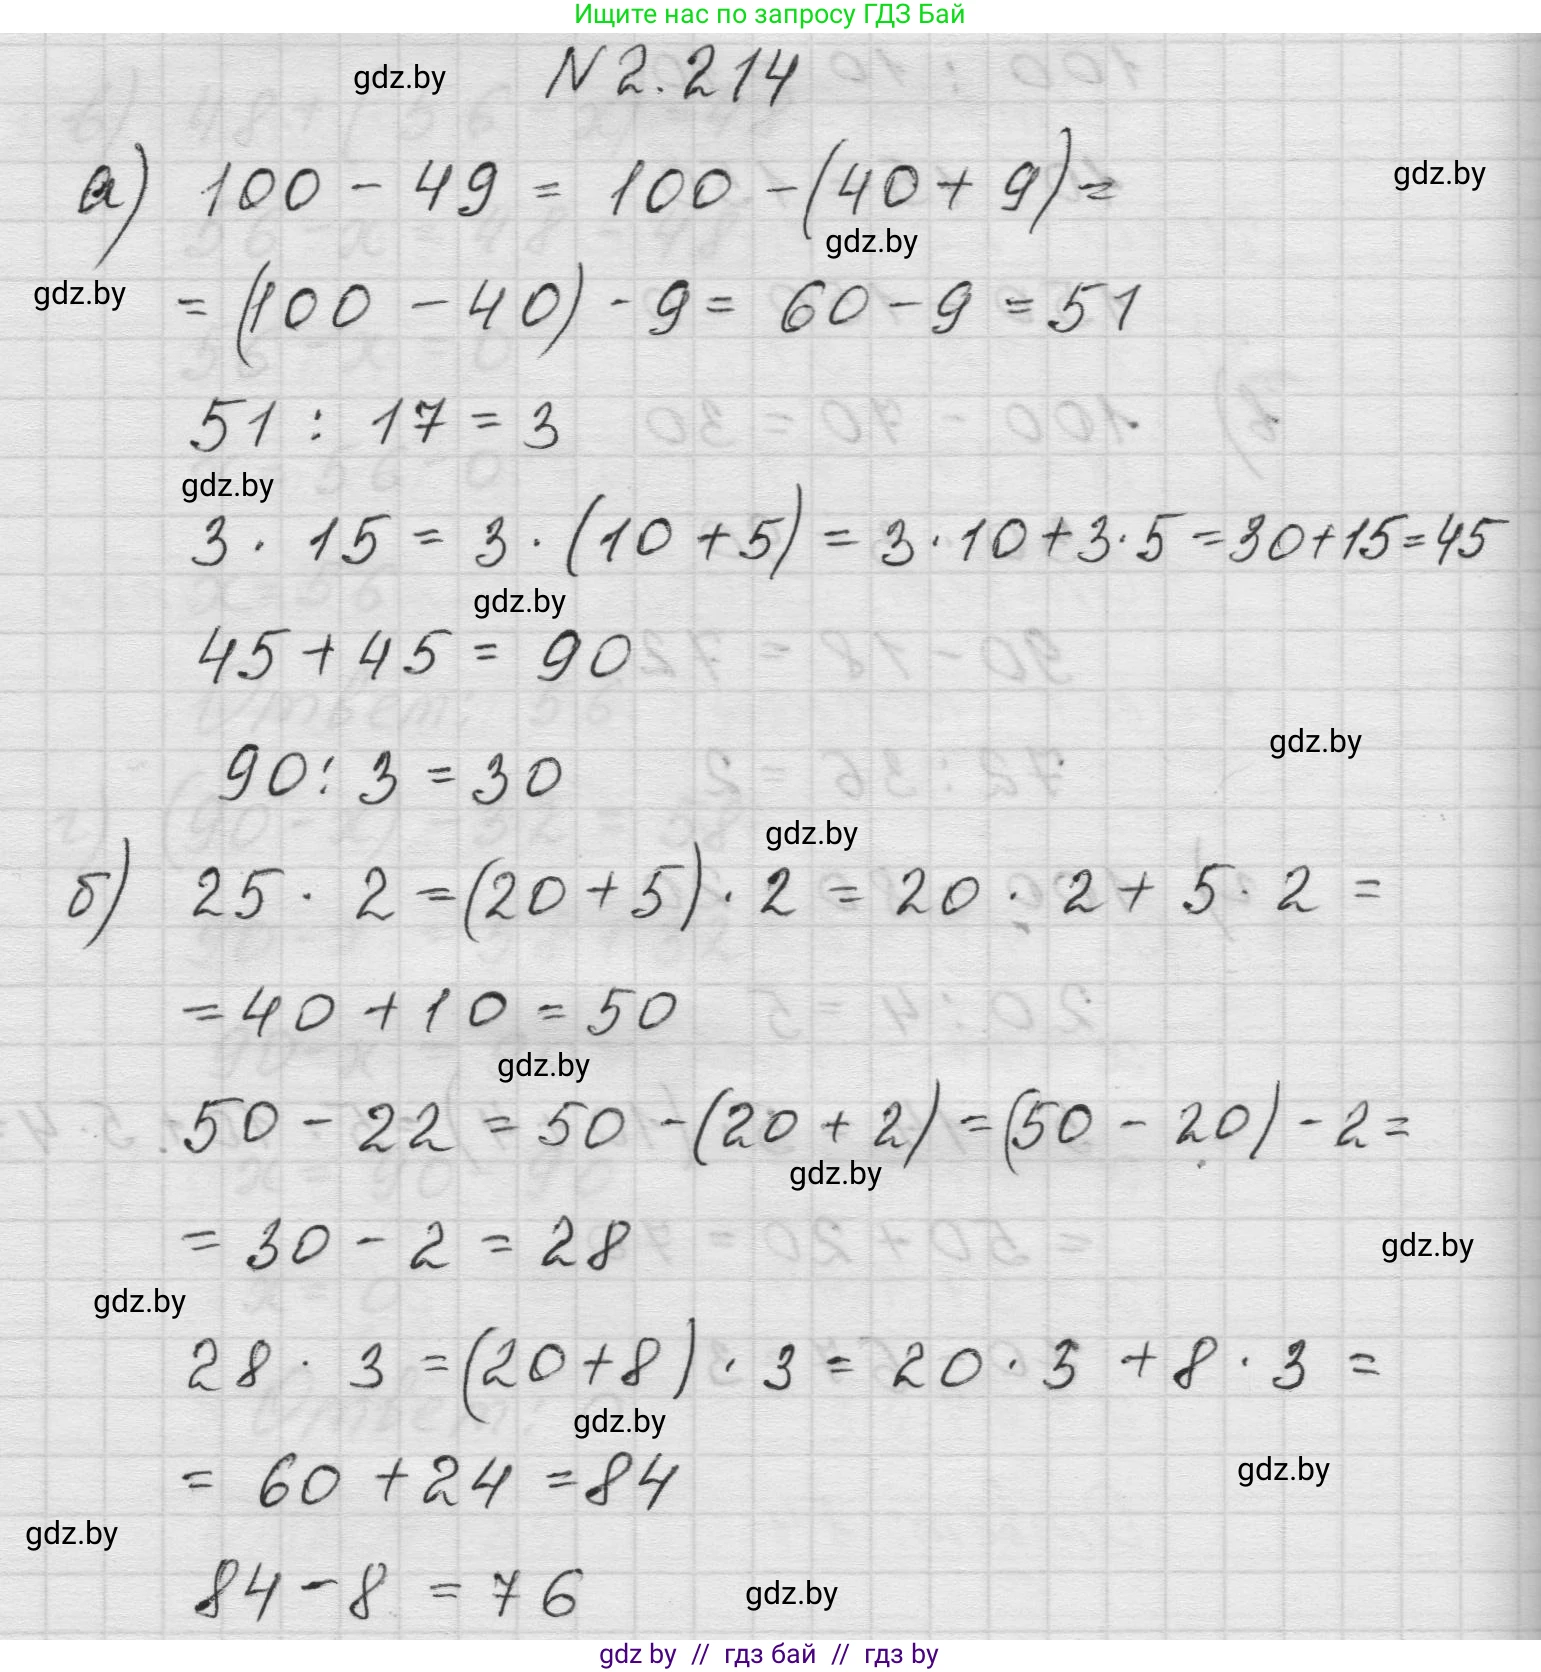 Ищите нас по запросу ГДЗ Бай
N 2.214
gdz.by
а) 100 - 49 = 100 - (40 + 9) =
gdz.by
gdz.by
gdz.by
= (100 - 40) - 9 = 60 - 9 = 51
51 : 17 = 3
gdz.by
3 · 15 = 3 · (10 + 5) = 3 · 10 + 3 · 5 = 30 + 15 = 45
gdz.by
45 + 45 = 90
gdz.by
90 : 3 = 30
gdz.by
б) 25 · 2 = (20 + 5) · 2 = 20 · 2 + 5 · 2 =
= 40 + 10 = 50
gdz.by
50 - 22 = 50 - (20 + 2) = (50 - 20) - 2 =
gdz.by
= 30 - 2 = 28
gdz.by
gdz.by
28 · 3 = (20 + 8) · 3 = 20 · 3 + 8 · 3 =
gdz.by
= 60 + 24 = 84
gdz.by
gdz.by
84 - 8 = 76
gdz.by
gdz by // гдз бай // гдз by